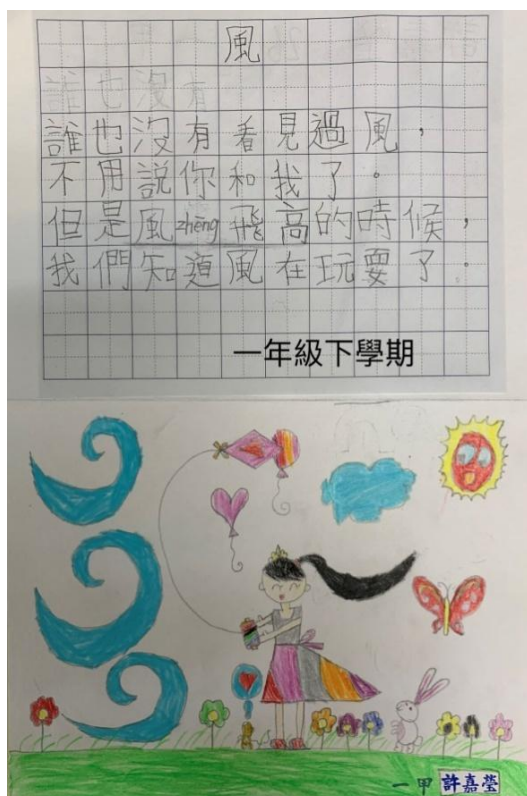 風
誰也沒有
誰也沒有看見過風，
不用説你和我了。
但是風zhēng飛高的時候，
我們知道風在玩耍了。
一年級下學期
一甲 許嘉瑩